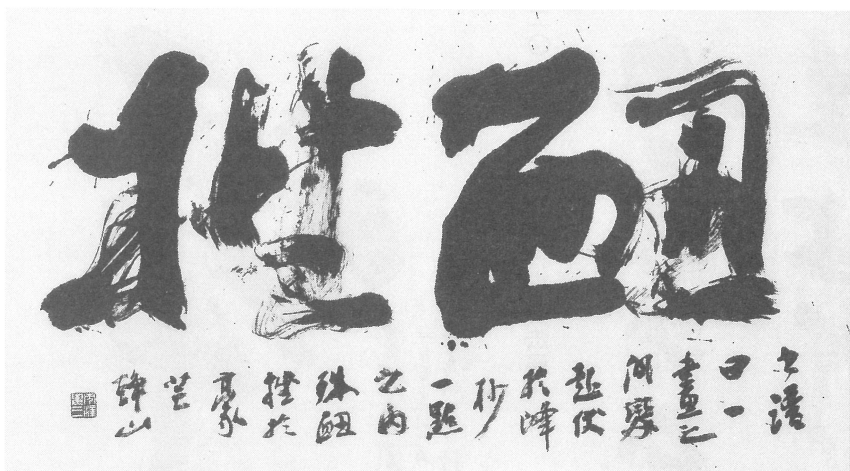 衄挫
書譜
曰一
畫之
間變
起伏
於峰
杪
一點
之內
殊衄
挫於
豪
芒
山